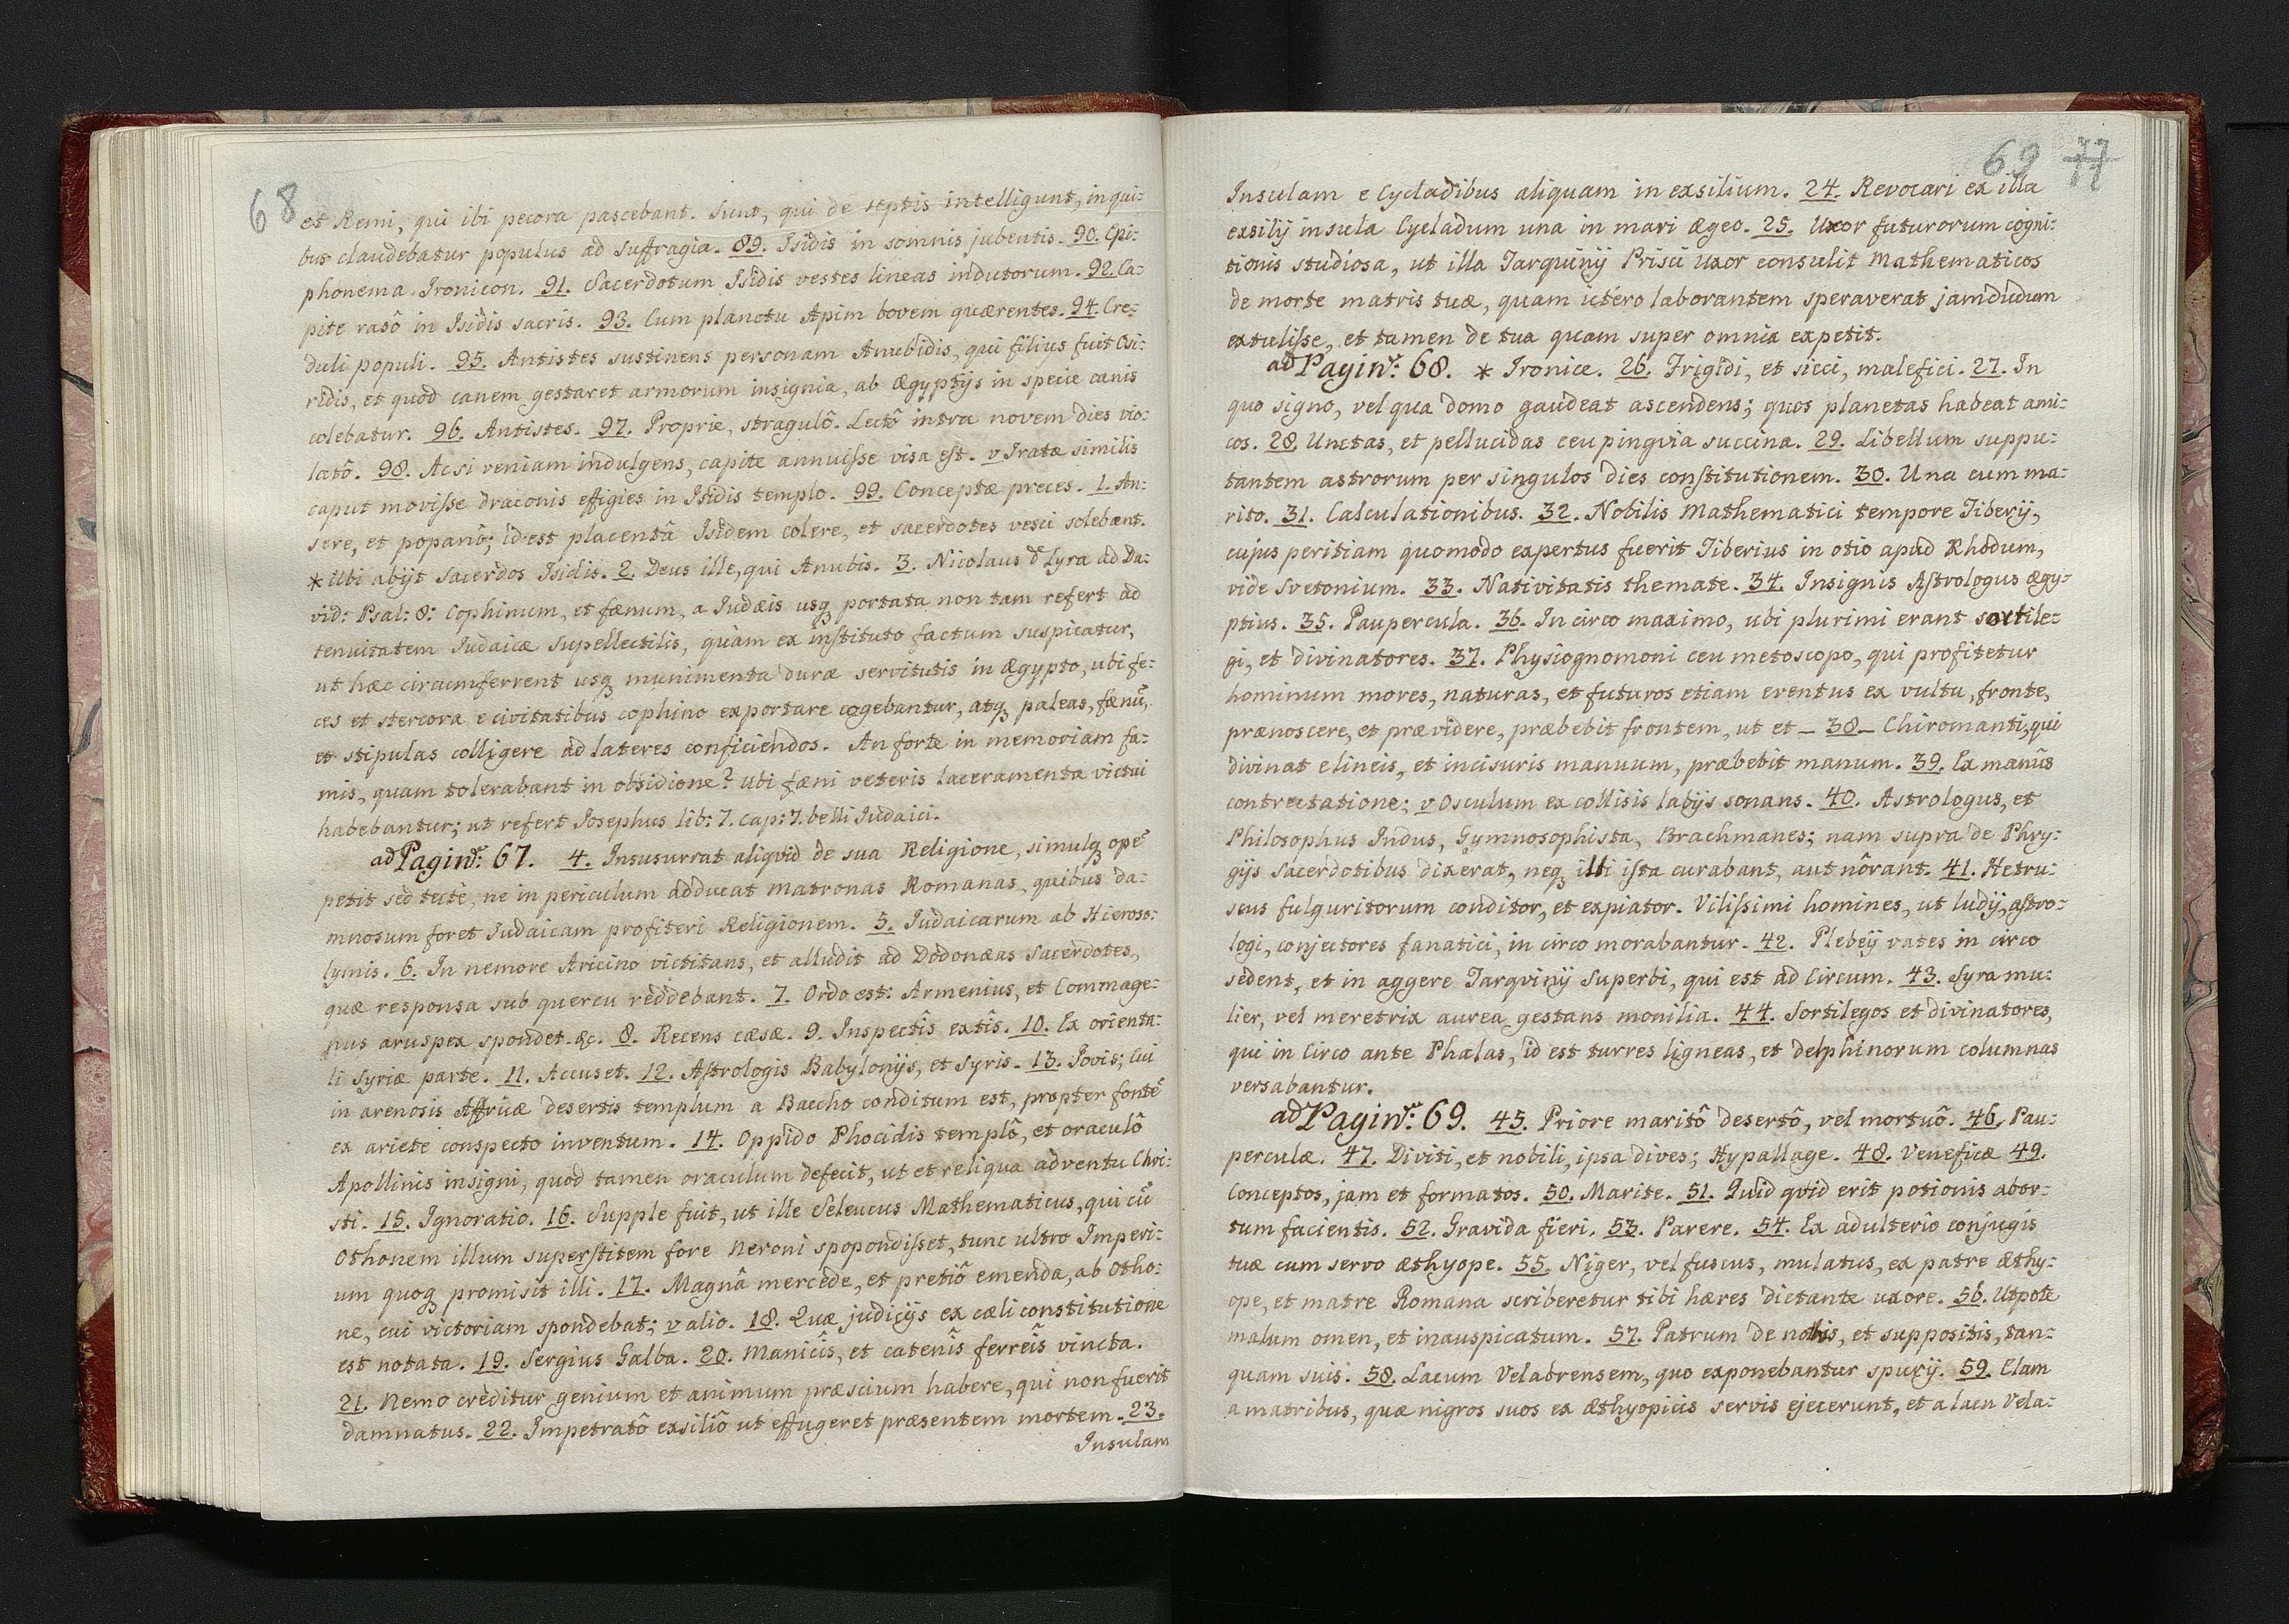 68
et Remi, qui ibi pecora pascebant. Sunt, qui de septis intelligunt, in qui-
bus claudebatur populus ad suffragia. 89. Isidis in somnis jubentis. 90. Epi-
phonema Ironicon. 91. Sacerdotum Isidis vestes lineas indutorum. 92. Ca-
pite rasô in Isidis sacris. 93. Cum planctu Apim bovem quærentes. 94. Cre-
duli populi. 95. Antistes sustinens personam Anubidis, qui filius fuit Osi-
ridis, et quod canem gestaret armorum insignia, ab Ægyptijs in specie canis
colebatur. 96. Antistes. 97. Proprie, stragulô. Lectô intra novem dies vio-
latô. 98. Ac si veniam indulgens, capite annuisse visa est. v Iratæ similis
caput movisse draconis effigies in Isidis templo. 99. Conceptæ preces. 1. An-
sere, et popanô; id est placentâ Isidem colere, et sacerdotes vesci solebant.
* Ubi abijt sacerdos Isidis. 2. Deus ille, qui Anubis. 3. Nicolaus d Lyra ad Da-
vid: Psal: 8: Cophinum, et fænum, a Judæis usq portata non tam refert ad
tenuitatem Judaicæ supellectilis, quàm ex instituto factum suspicatur,
ut hæc circumferrent usq munimenta duræ servitutis in Ægypto, ubi fe-
ces et stercora e civitatibus cophino exportare cogebantur, atq paleas, fænu,
et stipulas colligere ad lateres conficiendos. An forte in memoriam fa-
mis, quam tolerabant in obsidione? ubi fæni veteris laceramenta victui
habebantur; ut refert Josephus lib: 7. cap: 7. belli Judaici.
ad Pagin: 67. 4. Insusurrat aliqvid de sua Religione, simulq ope
petit sed tecte, ne in periculum adducat matronas Romanas, quibus da-
mnosum foret Judaicam profiteri Religionem. 5. Judaicarum ab Hieroso-
lymis. 6. In nemore Aricino victitans, et alludit ad Dodonæas Sacerdotes,
quæ responsa sub quercu reddebant. 7. Ordo est: Armenius, et Commage-
nus aruspex spondet &c. 8. Recens cæsæ. 9. Inspectîs extîs. 10. Ex orienta-
li Syriæ parte. 11. Accuset. 12. Astrologis Babylonijs, et Syris. 13. Jovis; cui
in arenosis Affricæ desertis templum a Baccho conditum est, propter fonte
ex ariete conspecto inventum. 14. Oppido Phocidis templô, et oraculô
Apollinis insigni, quod tamen oraculum defecit, ut et reliqua adventu Chri-
sti. 15. Ignoratio. 16. Supple fuit, ut ille Seleucus Mathematicus, qui cu
Othonem illum superstitem fore Neroni spopondisset, tunc ultro Imperi-
um quoq promisit illi. 17. Magnâ mercede, et pretiô emenda, ab Otho-
ne, cui victoriam spondebat; v alio. 18. Quæ judicijs ex cæli constitutione
est notata. 19. Sergius Galba. 20. Manicîs, et catenîs ferreîs vincta.
21. Nemo creditur genium et animum præscium habere, qui non fuerit
damnatus. 22. Impetratô exsiliô ut effugeret præsentem mortem. 23.
Insulam
69 77
Insulam e Cycladibus aliquam in exsilium. 24. Revocari ex illa
exsilij insula Cycladum una in mari Ægeo. 25. Uxor futurorum cogni-
tionis studiosa, ut illa Tarquinij Prisci uxor consulit Mathematicos
de morte matris tuæ, quam utero laborantem speraverat jamdudum
extulisse, et tamen de tua quam super omnia expetit.
ad Pagin: 68. * Ironice. 26. Frigidi, et sicci, malefici. 27. In
quo signo, vel qua domo gaudeat ascendens; quos planetas habeat ami-
cos. 28. Unctas, et pellucidas ceu pingvia succina. 29. Libellum suppu-
tantem astrorum per singulos dies constitutionem. 30. Una cum ma-
rito. 31. Calculationibus. 32. Nobilis Mathematici tempore Tiberij,
cujus peritiam quomodo expertus fuerit Tiberius in otio apud Rhodum,
vide Svetonium. 33. Nativitatis themate. 34. Insignis Astrologus Ægy-
ptius. 35. Paupercula. 36. In circo maximo, ubi plurimi erant sortile-
gi, et divinatores. 37. Physiognomoni ceu metoscopo, qui profitetur
hominum mores, naturas, et futuros etiam eventus ex vultu, fronte,
prænoscere, et prævidere, præbebit frontem, ut et – 38 – Chiromanti, qui
divinat e lineis, et incisuris manuum, præbebit manum. 39. Ex manûs
contrectatione; v Osculum ex collisis labijs sonans. 40. Astrologus, et
Philosophus Indus, Gymnosophista, Brachmanes; nam supra de Phry-
gijs Sacerdotibus dixerat, neq illi ista curabant, aut nôrant. 41. Hetru-
scus fulguritorum conditor, et expiator. Vilissimi homines, ut ludij, astro-
logi, conjectores fanatici, in circo morabantur. 42. Plebeij vates in circo
sedent, et in aggere Tarqvinij Superbi, qui est ad Circum. 43. Syra mu-
lier, vel meretrix aurea gestans monilia. 44. Sortilegos et divinatores,
qui in Circo ante Phalas, id est turres ligneas, et delphinorum columnas
versabantur.
ad Pagin: 69. 45. Priore maritô desertô, vel mortuô. 46. Pau-
perculæ. 47. Diviti, et nobili, ipsa dives; Hypallage. 48. Veneficæ 49.
Conceptos, jam et formatos. 50. Marite. 51. Quid qvid erit potionis abor-
tum facientis. 52. Gravida fieri. 53. Parere. 54. Ex adulterio conjugis
tuæ cum servo Æthyope. 55. Niger, vel fuscus, mulatus, ex patre Æthy-
ope, et matre Romana scriberetur tibi hæres dictante uxore. 56. Utpote
malum omen, et inauspicatum. 57. Patrum de nothis, et suppositis, tan-
quam suis. 58. Lacum Velabrensem, quo exponebantur spurij. 59. Clam
a matribus, quæ nigros suos ex Æthyopicis servis ejecerunt, et a lacu Vela-